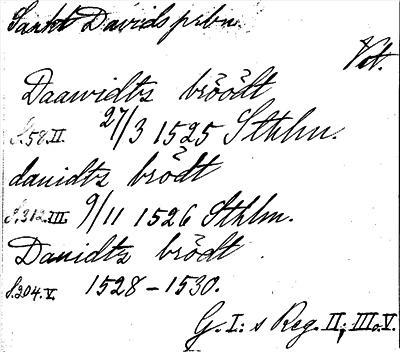 Sankt Davids prbn.
Vst.
Daawidtz bröödt
S.58.II. 27/3 1525 Sthlm.
dauidtz brödt
S.312.III. 9/11 1526 Sthlm.
Dauidtz brödt
S.204.V. 1528-1530.
G. I:s Reg. II; III o. V.